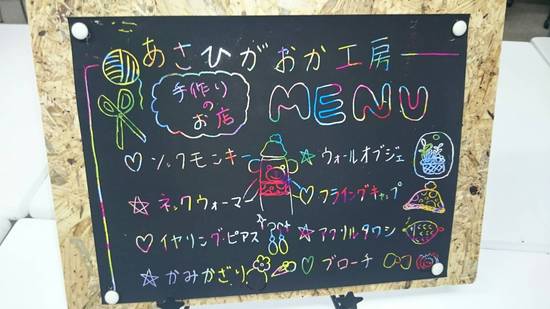 あさひがおか工房
手作り
の
お店
MENU
♡ソックモンキー
☆ウォールオブジェ
☆ネックウォーマー
♡フライングキャップ
♡イヤリング・ピアス
☆アクリルタワシ
☆かみかざり
♡ブローチ